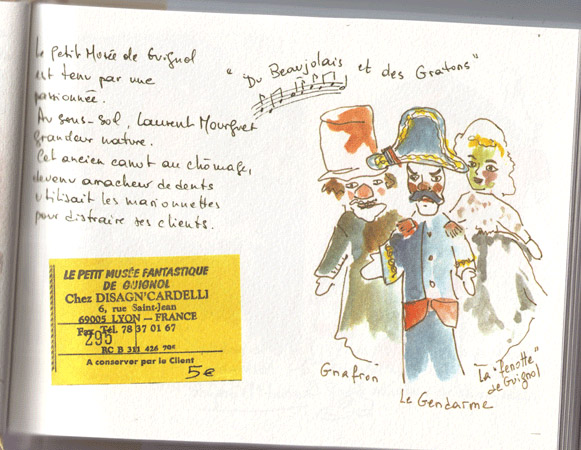 Le Petit Musée de Guignol
est tenu par une
passionnée.
Au sous-sol, Laurent Mourguet
grandeur nature.
Cet ancien canut au chômage,
devenu arracheur de dents
utilisait les marionnettes
pour distraire ses clients.
"Du Beaujolais et des Gratons"
LE PETIT MUSÉE FANTASTIQUE
DE GUIGNOL
Chez DISAGN'CARDELLI
6, rue Saint-Jean
69005 LYON — FRANCE
Fax Tel. 78 37 01 67
295
RC B 311 426 70
A conserver par le Client
5€
Gnafron
Le Gendarme
"La fenotte"
de Guignol